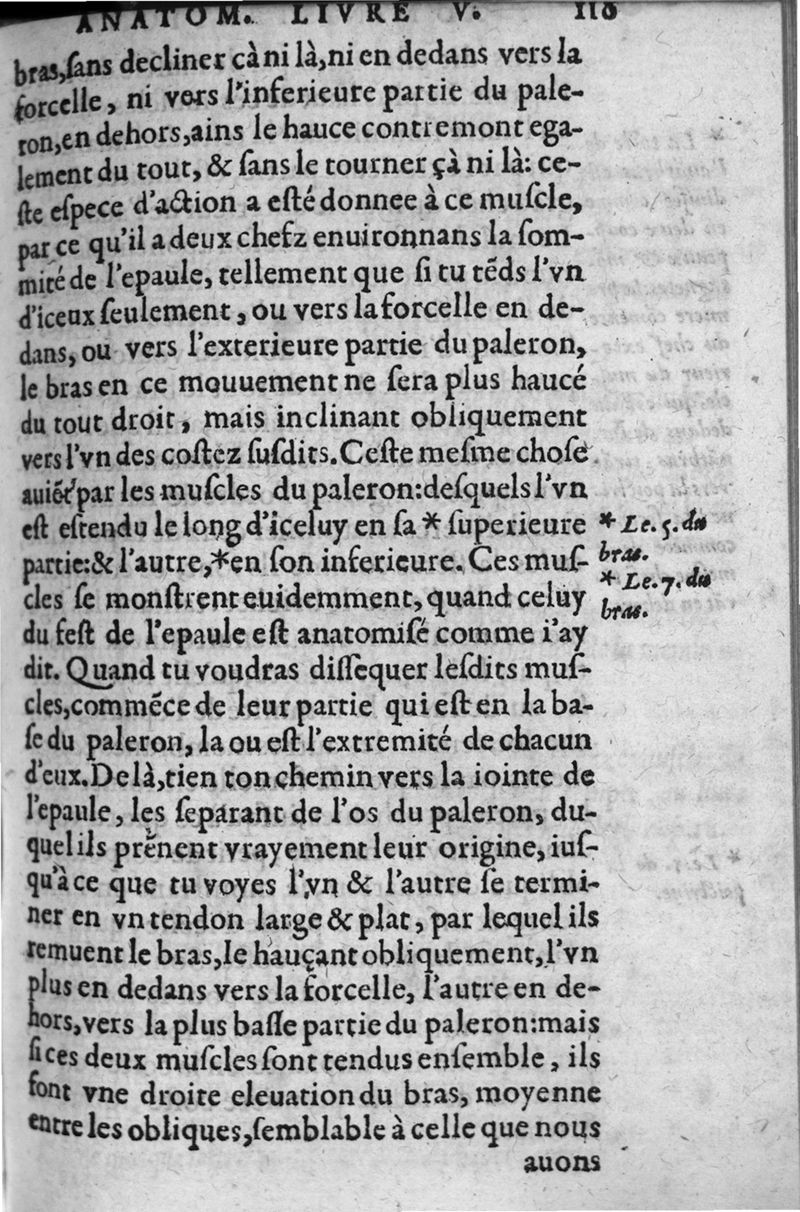 ANATOM. LIVRE V. 110
bras,ſans decliner çà ni là,ni en dedans vers la
forcelle, ni vers l'inferieure partie du pale-
ron,en dehors,ains le hauce contremont ega-
lement du tout, & ſans le tourner çà ni là: ce-
ſte eſpece d'action a eſté donnee à ce muſcle,
par ce qu'il a deux chefz enuironnans la ſom-
mité de l'epaule, tellement que ſi tu tẽds l'vn
d'iceux ſeulement, ou vers la forcelle en de-
dans, ou vers l'exterieure partie du paleron,
le bras en ce mouuement ne ſera plus haucé
du tout droit, mais inclinant obliquement
vers l'vn des coſtez ſuſdits. Ceſte meſme choſe
auiẽt par les muſcles du paleron:deſquels l'vn
eſt eſtendu le long d'iceluy en ſa * ſuperieure
partie:& l'autre,*en ſon inferieure. Ces muſ-
cles ſe monſtrent euidemment, quand celuy
du feſt de l'epaule eſt anatomiſé comme i'ay
dit. Quand tu voudras diſſequer leſdits muſ-
cles,commẽce de leur partie qui eſt en la ba-
ſe du paleron, la ou eſt l'extremité de chacun
d'eux. De là,tien ton chemin vers la iointe de
l'epaule, les ſeparant de l'os du paleron, du-
quel ils prẽnent vrayement leur origine, iuſ-
qu'à ce que tu voyes l'vn & l'autre ſe termi-
ner en vn tendon large & plat, par lequel ils
remuent le bras,le hauçant obliquement,l'vn
plus en dedans vers la forcelle, l'autre en de-
hors,vers la plus baſſe partie du paleron:mais
ſi ces deux muſcles ſont tendus enſemble, ils
font vne droite eleuation du bras, moyenne
entre les obliques,ſemblable à celle que nous
auons
* Le. 5. du
bras.
* Le. 7. du
bras.